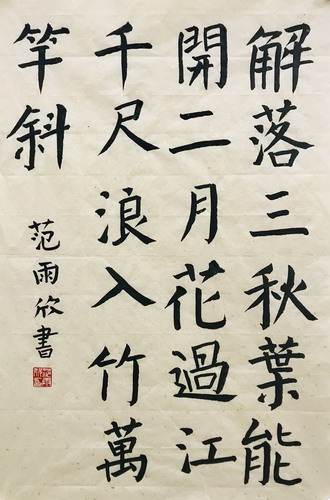 解落三秋葉能
開二月花過江
千尺浪入竹萬
竿斜
范雨欣書